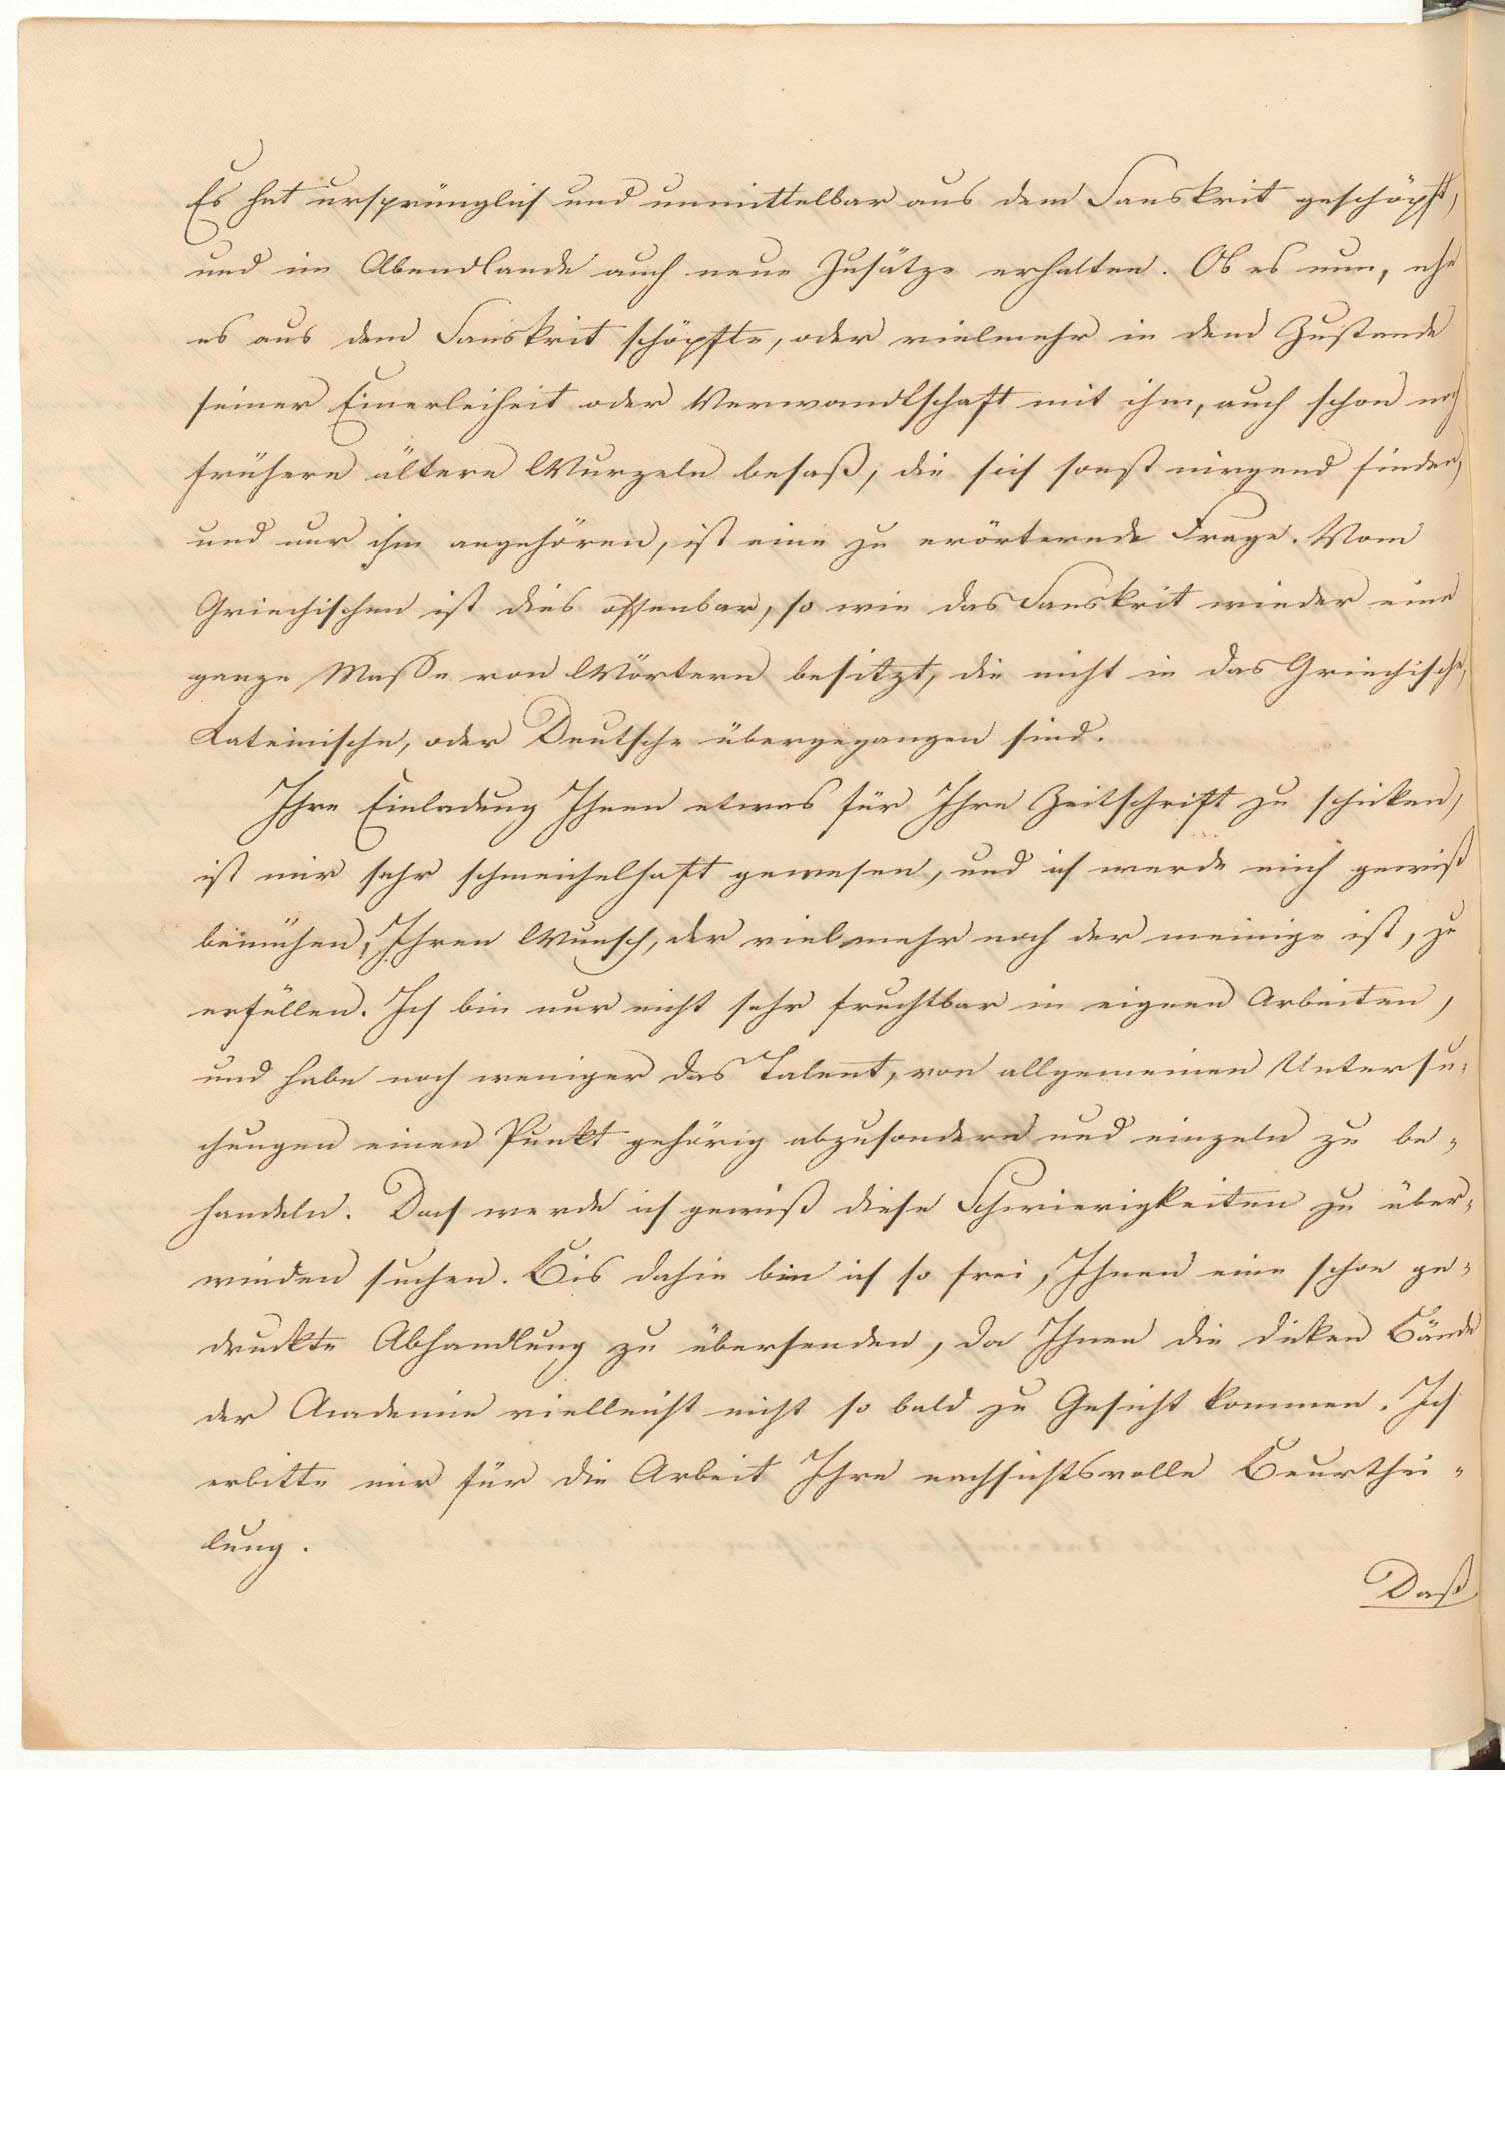 Es hat ursprünglich und unmittelbar aus dem Sanskrit geschöpft,
und im Abendlande auch neue Zusätze erhalten. Ob es nun, ehe
es aus dem Sanskrit schöpfte, oder vielmehr in dem Zustande
seiner Einerleiheit oder Verwandtschaft mit ihm, auch schon noch
frühere ältere Wurzeln besaß, die sich sonst nirgend finden,
und nur ihm angehören, ist eine zu erörternde Frage. Vom
Griechischen ist dies offenbar, so wie das Sanskrit wieder eine
ganze Masse von Wörtern besitzt, die nicht in das Griechische,
Lateinische, oder Deutsche übergegangen sind.
Ihre Einladung Ihnen etwas für Ihre Zeitschrift zu schicken,
ist mir sehr schmeichelhaft gewesen, und ich werde mich gewiß
bemühen, Ihren Wunsch, der vielmehr noch der meinige ist, zu
erfüllen. Ich bin nur nicht sehr fruchtbar in eignen Arbeiten,
und habe noch weniger das Talent, von allgemeinen Untersu-
chungen einen Punkt gehörig abzusondern und einzeln zu be-
handeln. Doch werde ich gewiß diese Schwierigkeiten zu über-
winden suchen. Bis dahin bin ich so frei, Ihnen eine schon ge-
druckte Abhandlung zu übersenden, da Ihnen die dicken Bände
der Academie vielleicht nicht so bald zu Gesicht kommen. Ich
erbitte mir für die Arbeit Ihre nachsichtsvolle Beurthei-
lung.
Daß